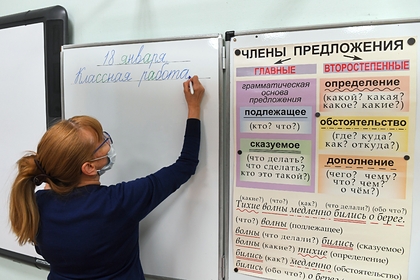 18 января
Классная работа
ЧЛЕНЫ ПРЕДЛОЖЕНИЯ
ГЛАВНЫЕ
ВТОРОСТЕПЕННЫЕ
грамматическая
основа
предложения
подлежащее
(кто? что?)
сказуемое
(что делать?
что сделать?
кто это такой?)
определение
(какой? какая?
какое? какие?)
обстоятельство
(где? куда?
как? откуда?)
дополнение
(чего? чему?
что? чем?
о чём?)
(какие?) (что?) (как?) (что делали?) (обо что?)
Тихие волны медленно бились о берег.
(что?) волны (подлежащее)
волны (что делали?) бились (сказуемое)
волны (какие?) тихие (определение)
бились (как?) медленно (обстоятельство)
бились (обо что?) о берег